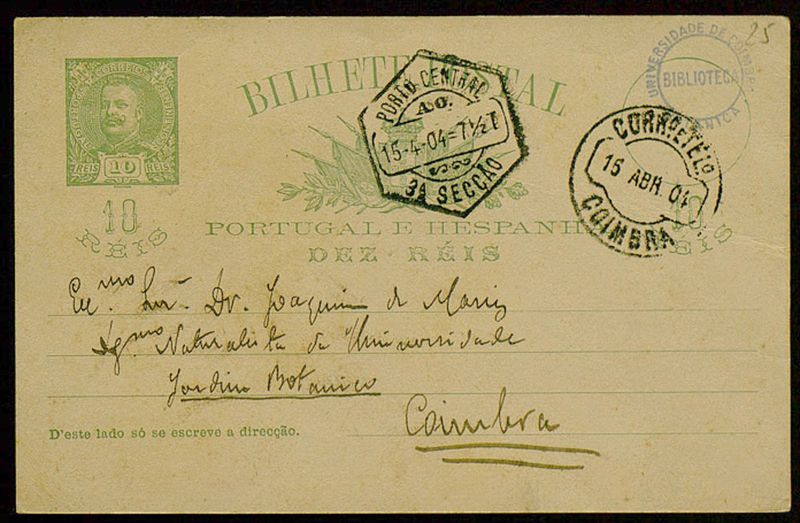 25
UNIVERSIDADE DE COIMBRA
BIBLIOTECA
BILHETE POSTAL
PORTUGAL
CORREIOS
REIS 10 REIS
PORTO CENTRAL
15-4-04=7½T
3A SECÇÃO
CORR.E TEL.
15 ABR 04
COIMBRA
10
RÉIS
10
RÉIS
PORTUGAL E HESPANHA
DEZ RÉIS
Exc.mo Snr. Dr. Joaquim de Mariz
Dg.mo Naturalista da Universidade
Jardim Botanico
Coimbra
D'este lado só se escreve a direcção.